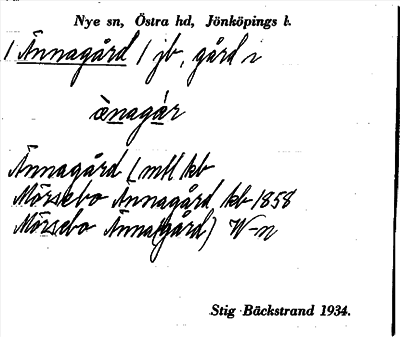 Nye sn, Östra hd, Jönköpings l.
( Ännagård ) jb, gård i
ä̀nagár
Ännagård (mtl kb
Mörsebo Ännagård kb 1858
Mörsebo Änna(gård) W-n
Stig Bäckstrand 1934.